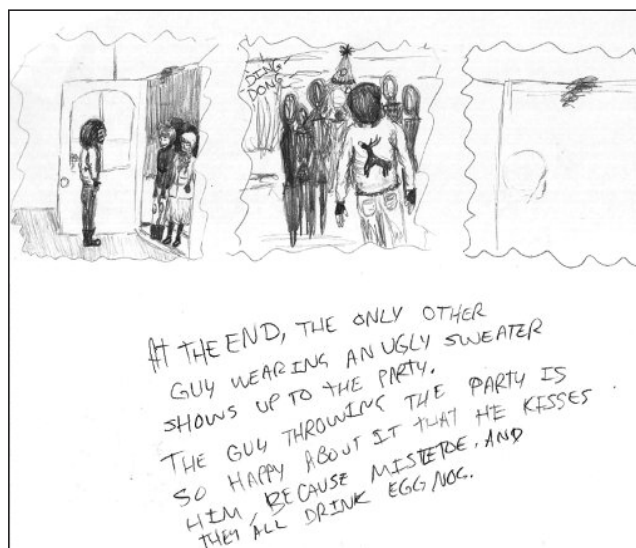 DING
DONG
AT THE END, THE ONLY OTHER
GUY WEARING AN UGLY SWEATER
SHOWS UP TO THE PARTY.
THE GUY THROWING THE PARTY IS
SO HAPPY ABOUT IT THAT HE KISSES
HIM, BECAUSE MISTLETOE. AND
THEY ALL DRINK EGG NOG.